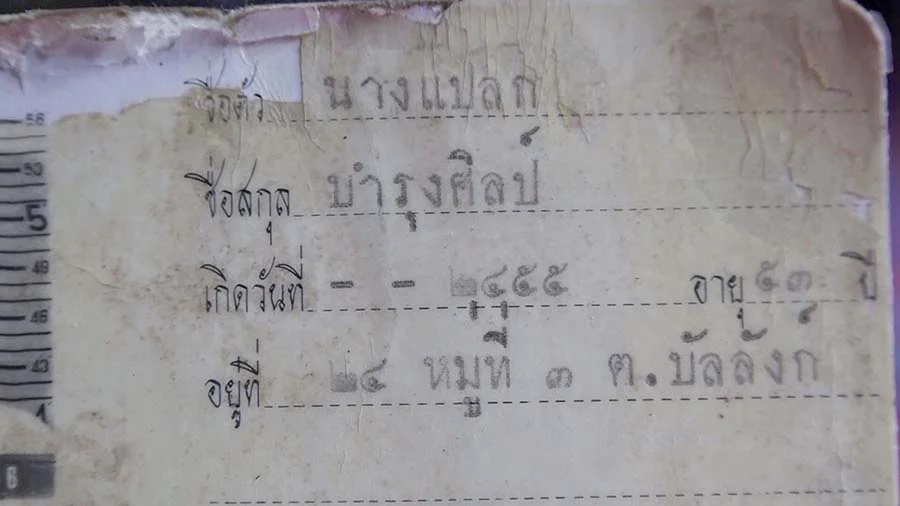 ชื่อตัว นางแปลก
ชื่อสกุล บำรุงศิลป์
เกิดวันที่ - - ๒๔๕๕ อายุ ๕๓ ปี
อยู่ที่ ๒๔ หมู่ที่ ๓ ต.บัลลังก์
50
5
48
46
43
6